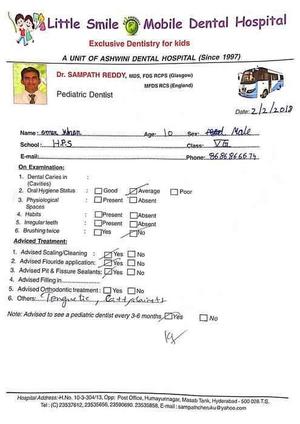 Little Smile Mobile Dental Hospital
Exclusive Dentistry for kids
A UNIT OF ASHWINI DENTAL HOSPITAL (Since 1997)
Dr. SAMPATH REDDY, MDS, FDS RCPS (Glasgow)
MFDS RCS (England)
Pediatric Dentist
Date: 2/2/2018
Name: Khan Age: 10 Sex: Male
School: H.P.S Class: VII
E-mail: Phone: 8686866674
On Examination:
1. Dental Caries in :
(Cavities)
2. Oral Hygiene Status : Good Average Poor
3. Physiological : Present Absent
Spaces
4. Habits : Present Absent
5. Irregular teeth : Present Absent
6. Brushing twice : Yes No
Adviced Treatment:
1. Advised Scaling/Cleaning : Yes No
2. Advised Flouride application: Yes No
3. Advised Pit & Fissure Sealants: Yes No
4. Advised Filling in
5. Advised Orthodontic treatment : Yes No
6. Others:
Note: Advised to see a pediatric dentist every 3-6 months. Yes No
Hospital Address:-H.No. 10-3-304/13, Opp: Post Office, Humayunnagar, Masab Tank, Hyderabad - 500 028 T.S.
Tel : (C) 23537612, 23535656, 23590690, 23535858, E-mail : sampathcheruku@yahoo.com